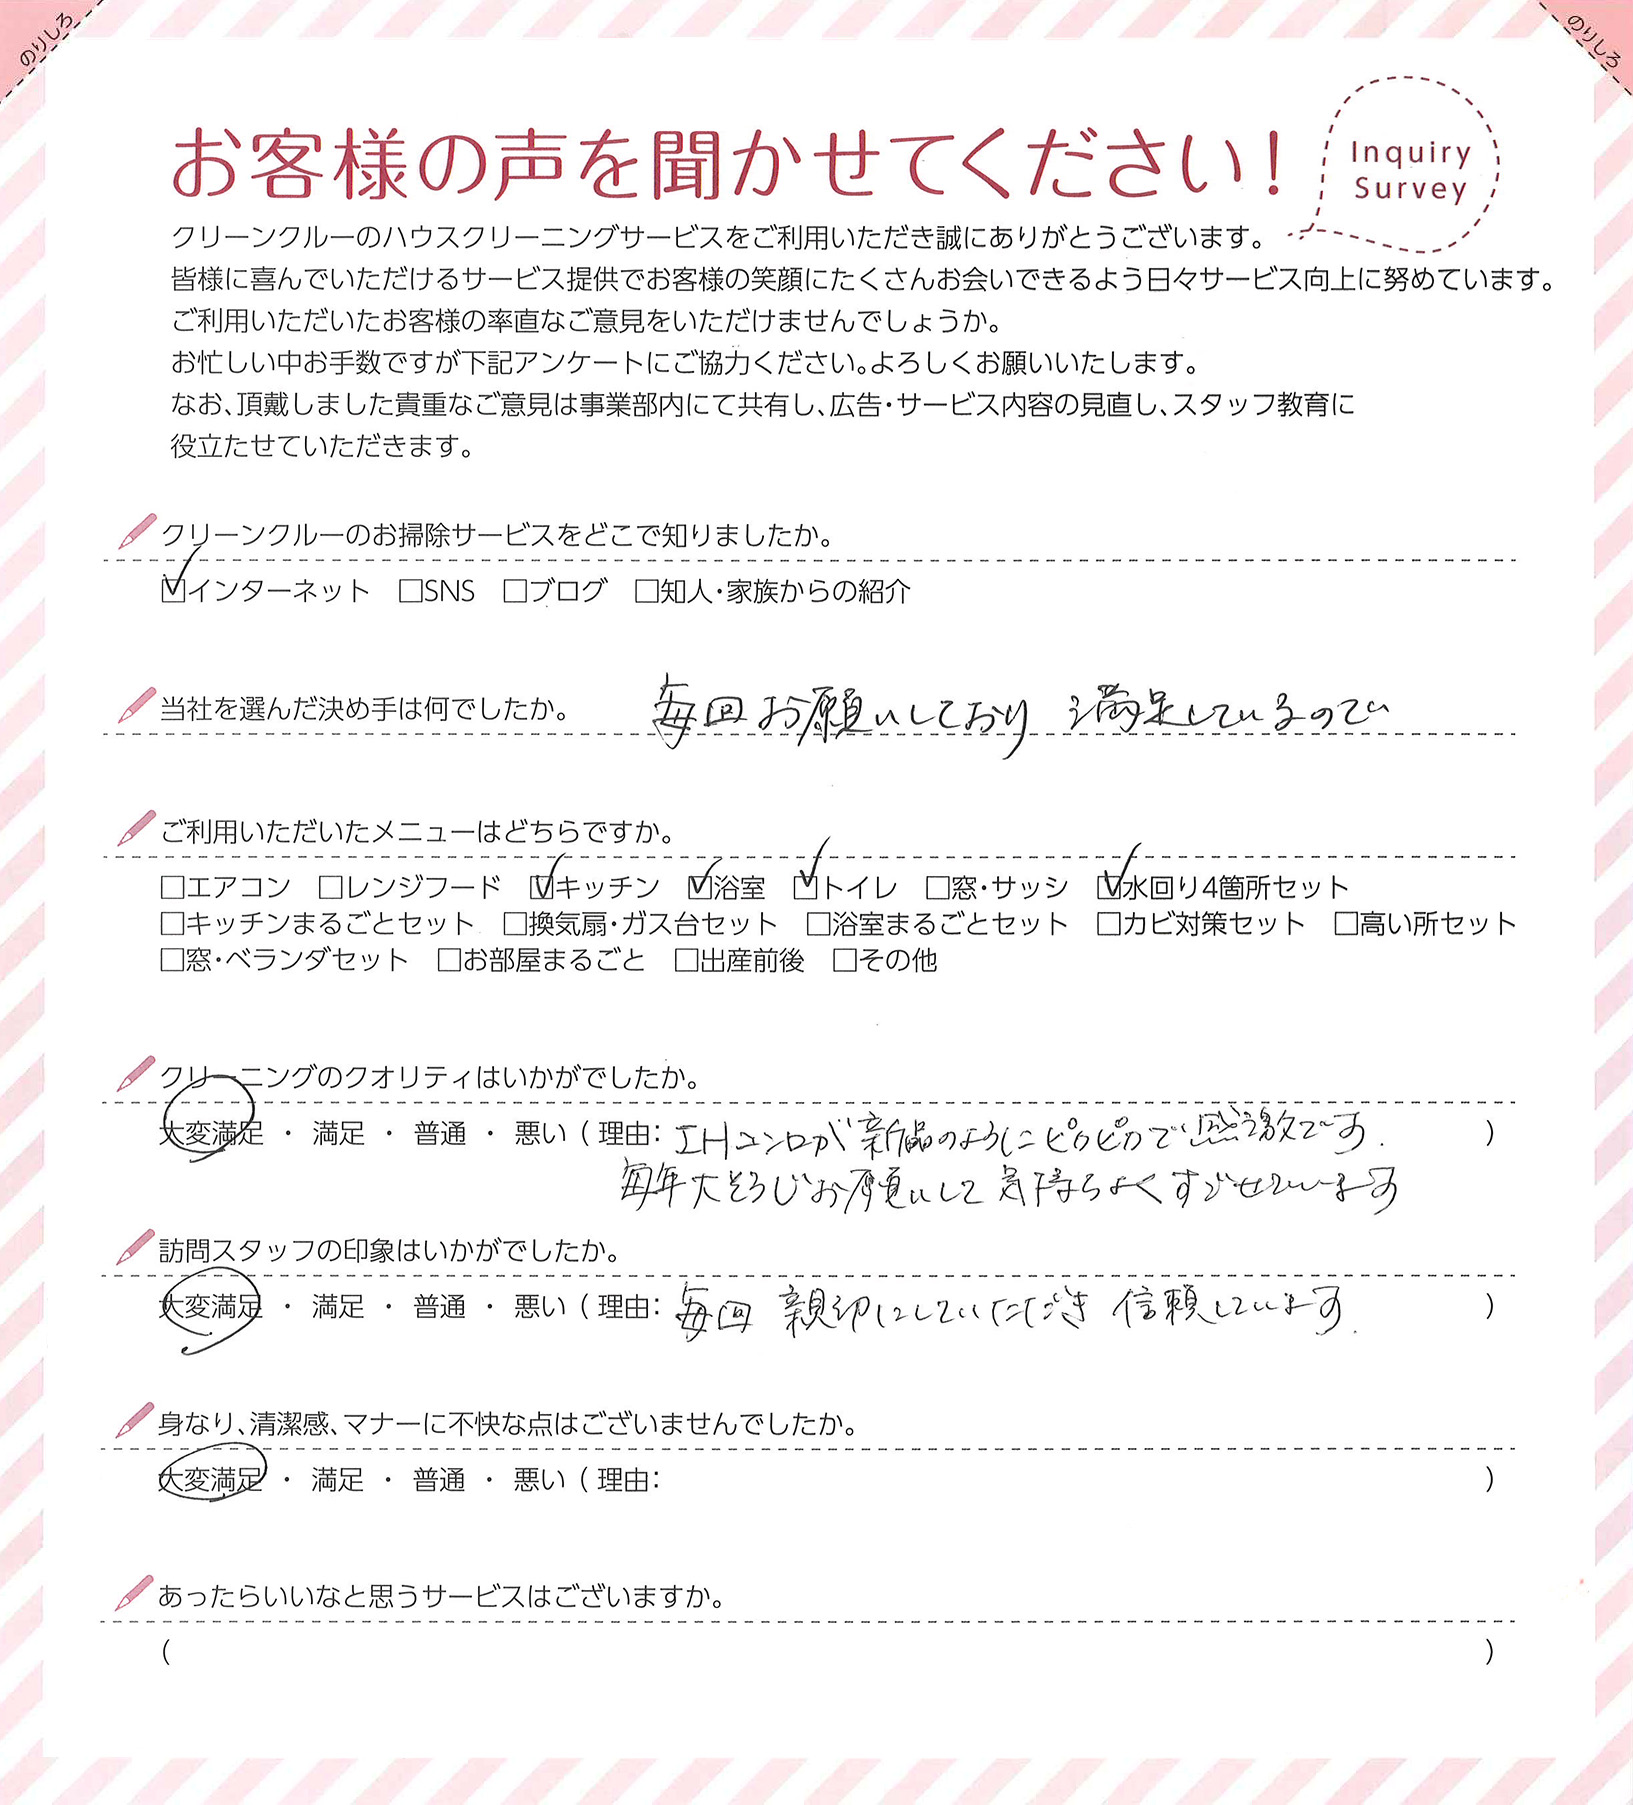 のりしろ
のりしろ
お客様の声を聞かせてください!
Inquiry
Survey
クリーンクルーのハウスクリーニングサービスをご利用いただき誠にありがとうございます。
皆様に喜んでいただけるサービス提供でお客様の笑顔にたくさんお会いできるよう日々サービス向上に努めています。
ご利用いただいたお客様の率直なご意見をいただけませんでしょうか。
お忙しい中お手数ですが下記アンケートにご協力ください。よろしくお願いいたします。
なお、頂戴しました貴重なご意見は事業部内にて共有し、広告・サービス内容の見直し、スタッフ教育に
役立たせていただきます。
クリーンクルーのお掃除サービスをどこで知りましたか。
☑インターネット □SNS □ブログ □知人・家族からの紹介
当社を選んだ決め手は何でしたか。 毎回お願いしており 満足しているので
ご利用いただいたメニューはどちらですか。
□エアコン □レンジフード ☑キッチン ☑浴室 ☑トイレ □窓・サッシ ☑水回り4箇所セット
□キッチンまるごとセット □換気扇・ガス台セット □浴室まるごとセット □カビ対策セット □高い所セット
□窓・ベランダセット □お部屋まるごと □出産前後 □その他
クリーニングのクオリティはいかがでしたか。
大変満足 ・ 満足 ・ 普通 ・ 悪い ( 理由: IHコンロが新品のようにピカピカで感激です. )
毎年大そうじお願いして気持ちよくすごせています
訪問スタッフの印象はいかがでしたか。
大変満足 ・ 満足 ・ 普通 ・ 悪い ( 理由: 毎回 親切にしていただき 信頼しています. )
身なり、清潔感、マナーに不快な点はございませんでしたか。
大変満足 ・ 満足 ・ 普通 ・ 悪い ( 理由: )
あったらいいなと思うサービスはございますか。
( )